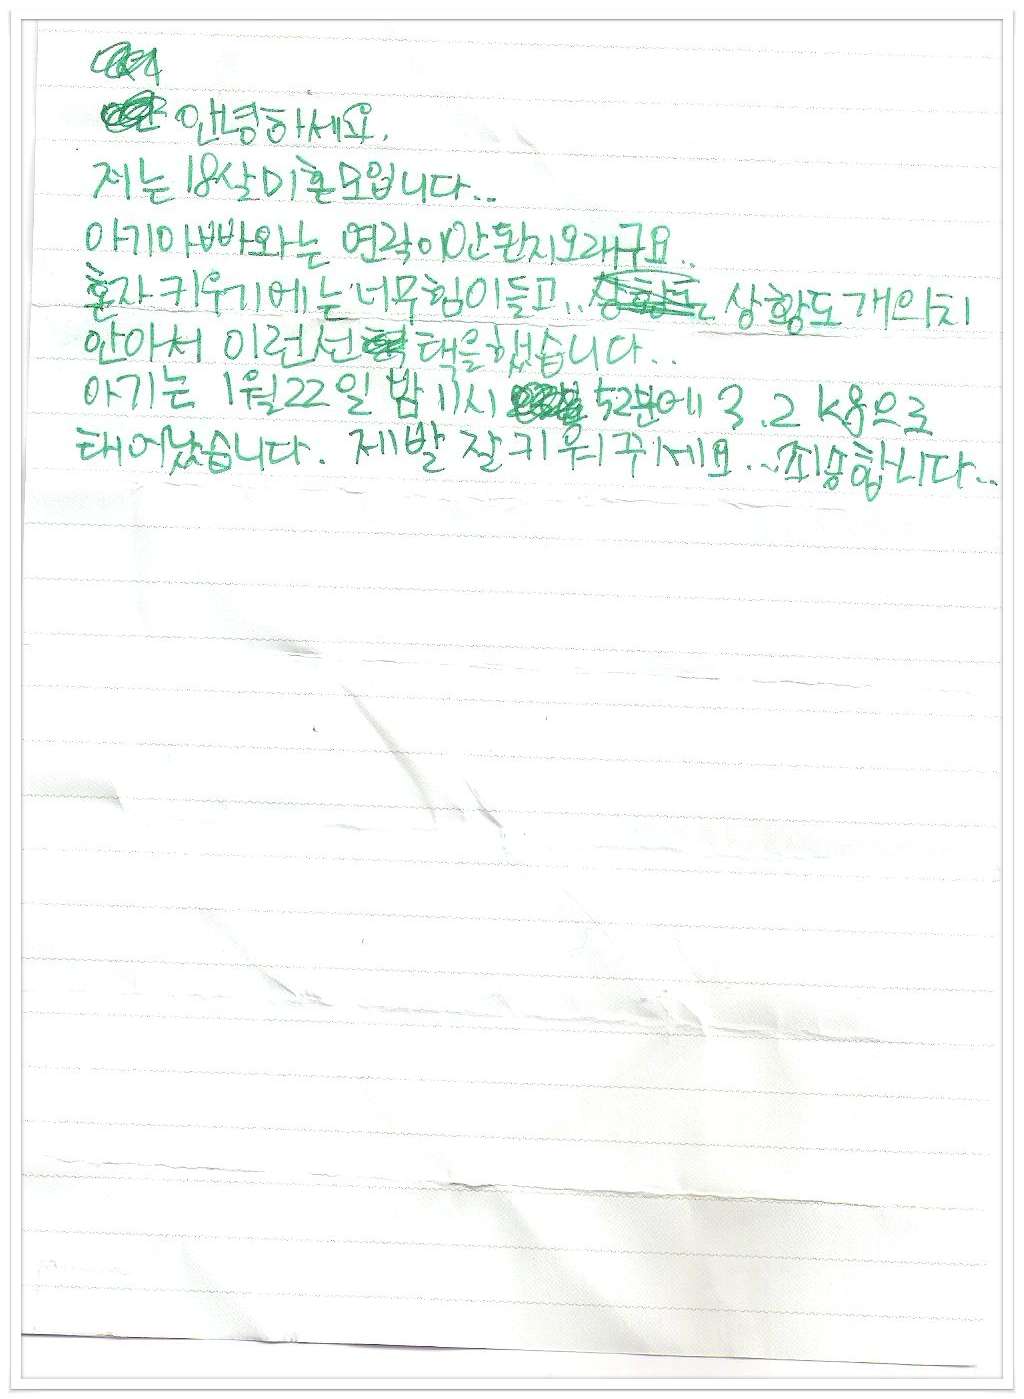 안녕하세요.
저는 18살 미혼모입니다..
아기아빠와는 연락이안된지오래구요..
혼자키우기에는 너무힘이들고... 상황도개의치
안아서 이런선택을했습니다..
아기는 1월22일 밤 11시 52분에 3.2 kg으로
태어났습니다. 제발 잘키워주세요... 죄송합니다..